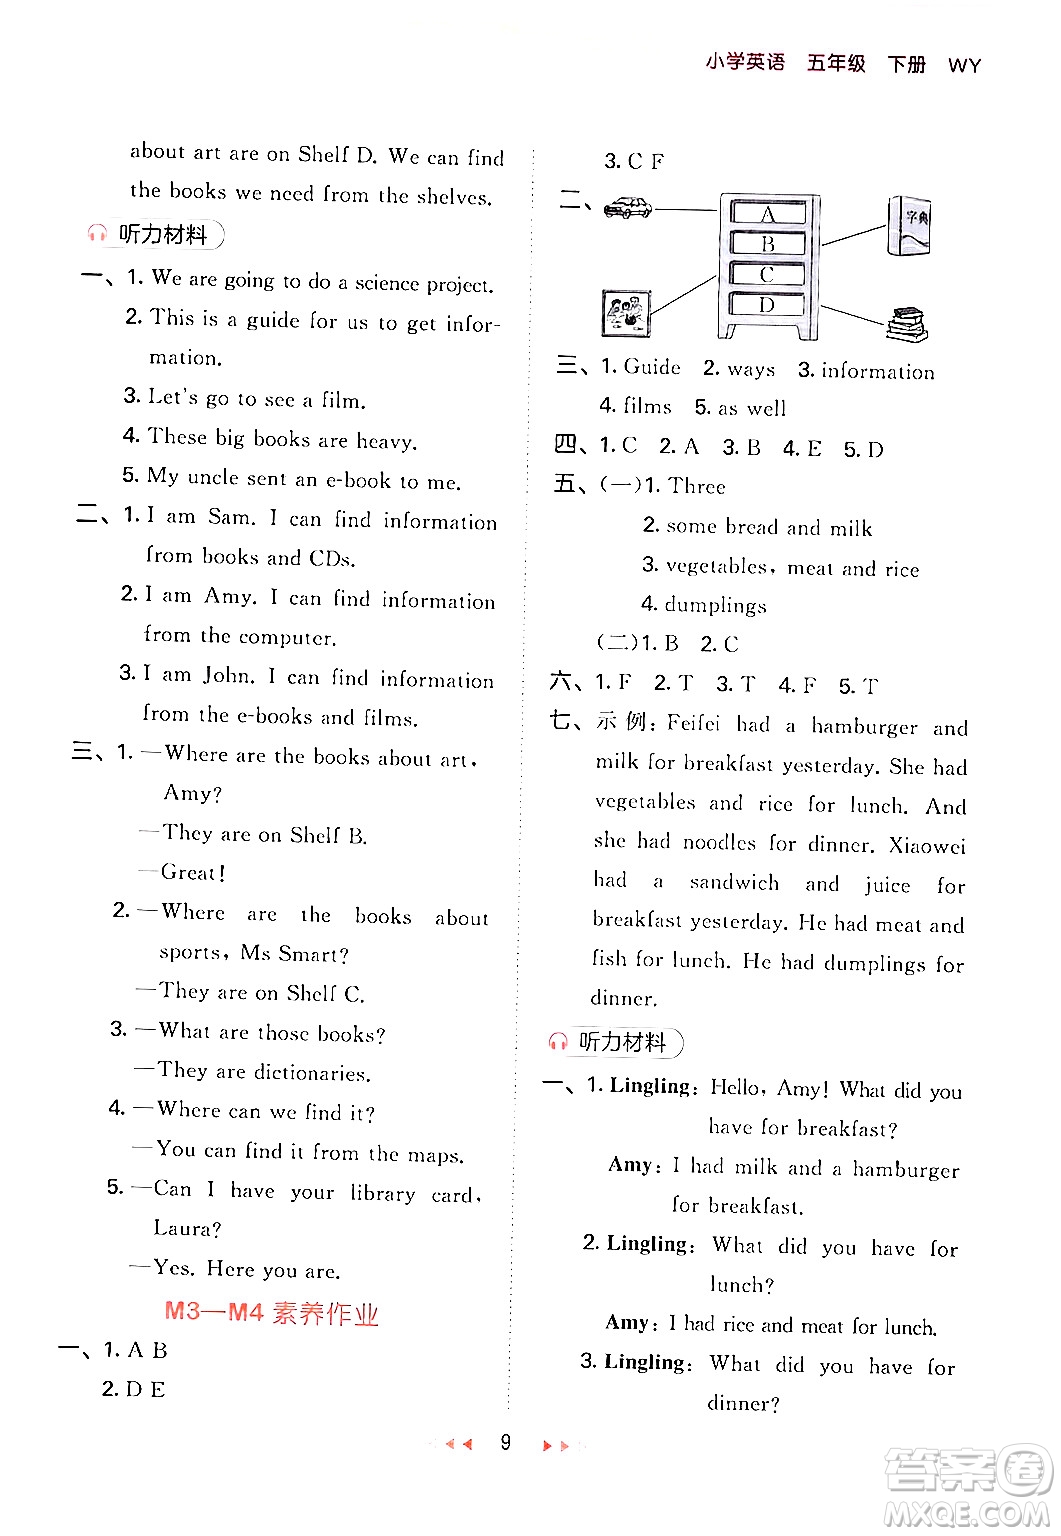 小学英语 五年级 下册 WY
about art are on Shelf D. We can find
the books we need from the shelves.
听力材料
一、1. We are going to do a science project.
2. This is a guide for us to get infor-
mation.
3. Let's go to see a film.
4. These big books are heavy.
5. My uncle sent an e-book to me.
二、1. I am Sam. I can find information
from books and CDs.
2. I am Amy. I can find information
from the computer.
3. I am John. I can find information
from the e-books and films.
三、1. —Where are the books about art,
Amy?
—They are on Shelf B.
—Great!
2. —Where are the books about
sports, Ms Smart?
—They are on Shelf C.
3. —What are those books?
—They are dictionaries.
4. —Where can we find it?
—You can find it from the maps.
5. —Can I have your library card,
Laura?
—Yes. Here you are.
M3—M4 素养作业
一、1. A B
2. D E
3. C F
二、
A
B
C
D
字典
三、1. Guide 2. ways 3. information
4. films 5. as well
四、1. C 2. A 3. B 4. E 5. D
五、(一)1. Three
2. some bread and milk
3. vegetables, meat and rice
4. dumplings
(二)1. B 2. C
六、1. F 2. T 3. T 4. F 5. T
七、示例: Feifei had a hamburger and
milk for breakfast yesterday. She had
vegetables and rice for lunch. And
she had noodles for dinner. Xiaowei
had a sandwich and juice for
breakfast yesterday. He had meat and
fish for lunch. He had dumplings for
dinner.
听力材料
一、1. Lingling: Hello, Amy! What did you
have for breakfast?
Amy: I had milk and a hamburger
for breakfast.
2. Lingling: What did you have for
lunch?
Amy: I had rice and meat for lunch.
3. Lingling: What did you have for
dinner?
9
答案圈
MXQE.COM